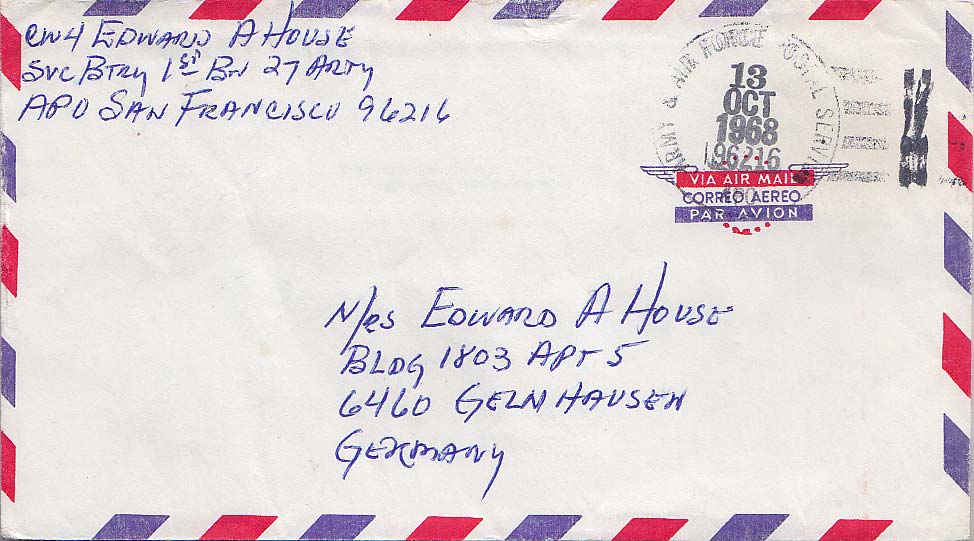 CW4 EDWARD A HOUSE
SVC BTRY 1ST BN 27 ARTY
APO SAN FRANCISCO 96216
ARMY & AIR FORCE POSTAL SERVICE
13
OCT
1968
96216
APO
VIA AIR MAIL
CORREO AEREO
PAR AVION
M/RS EDWARD A HOUSE
BLDG 1803 APT 5
6460 GELNHAUSEN
GERMANY